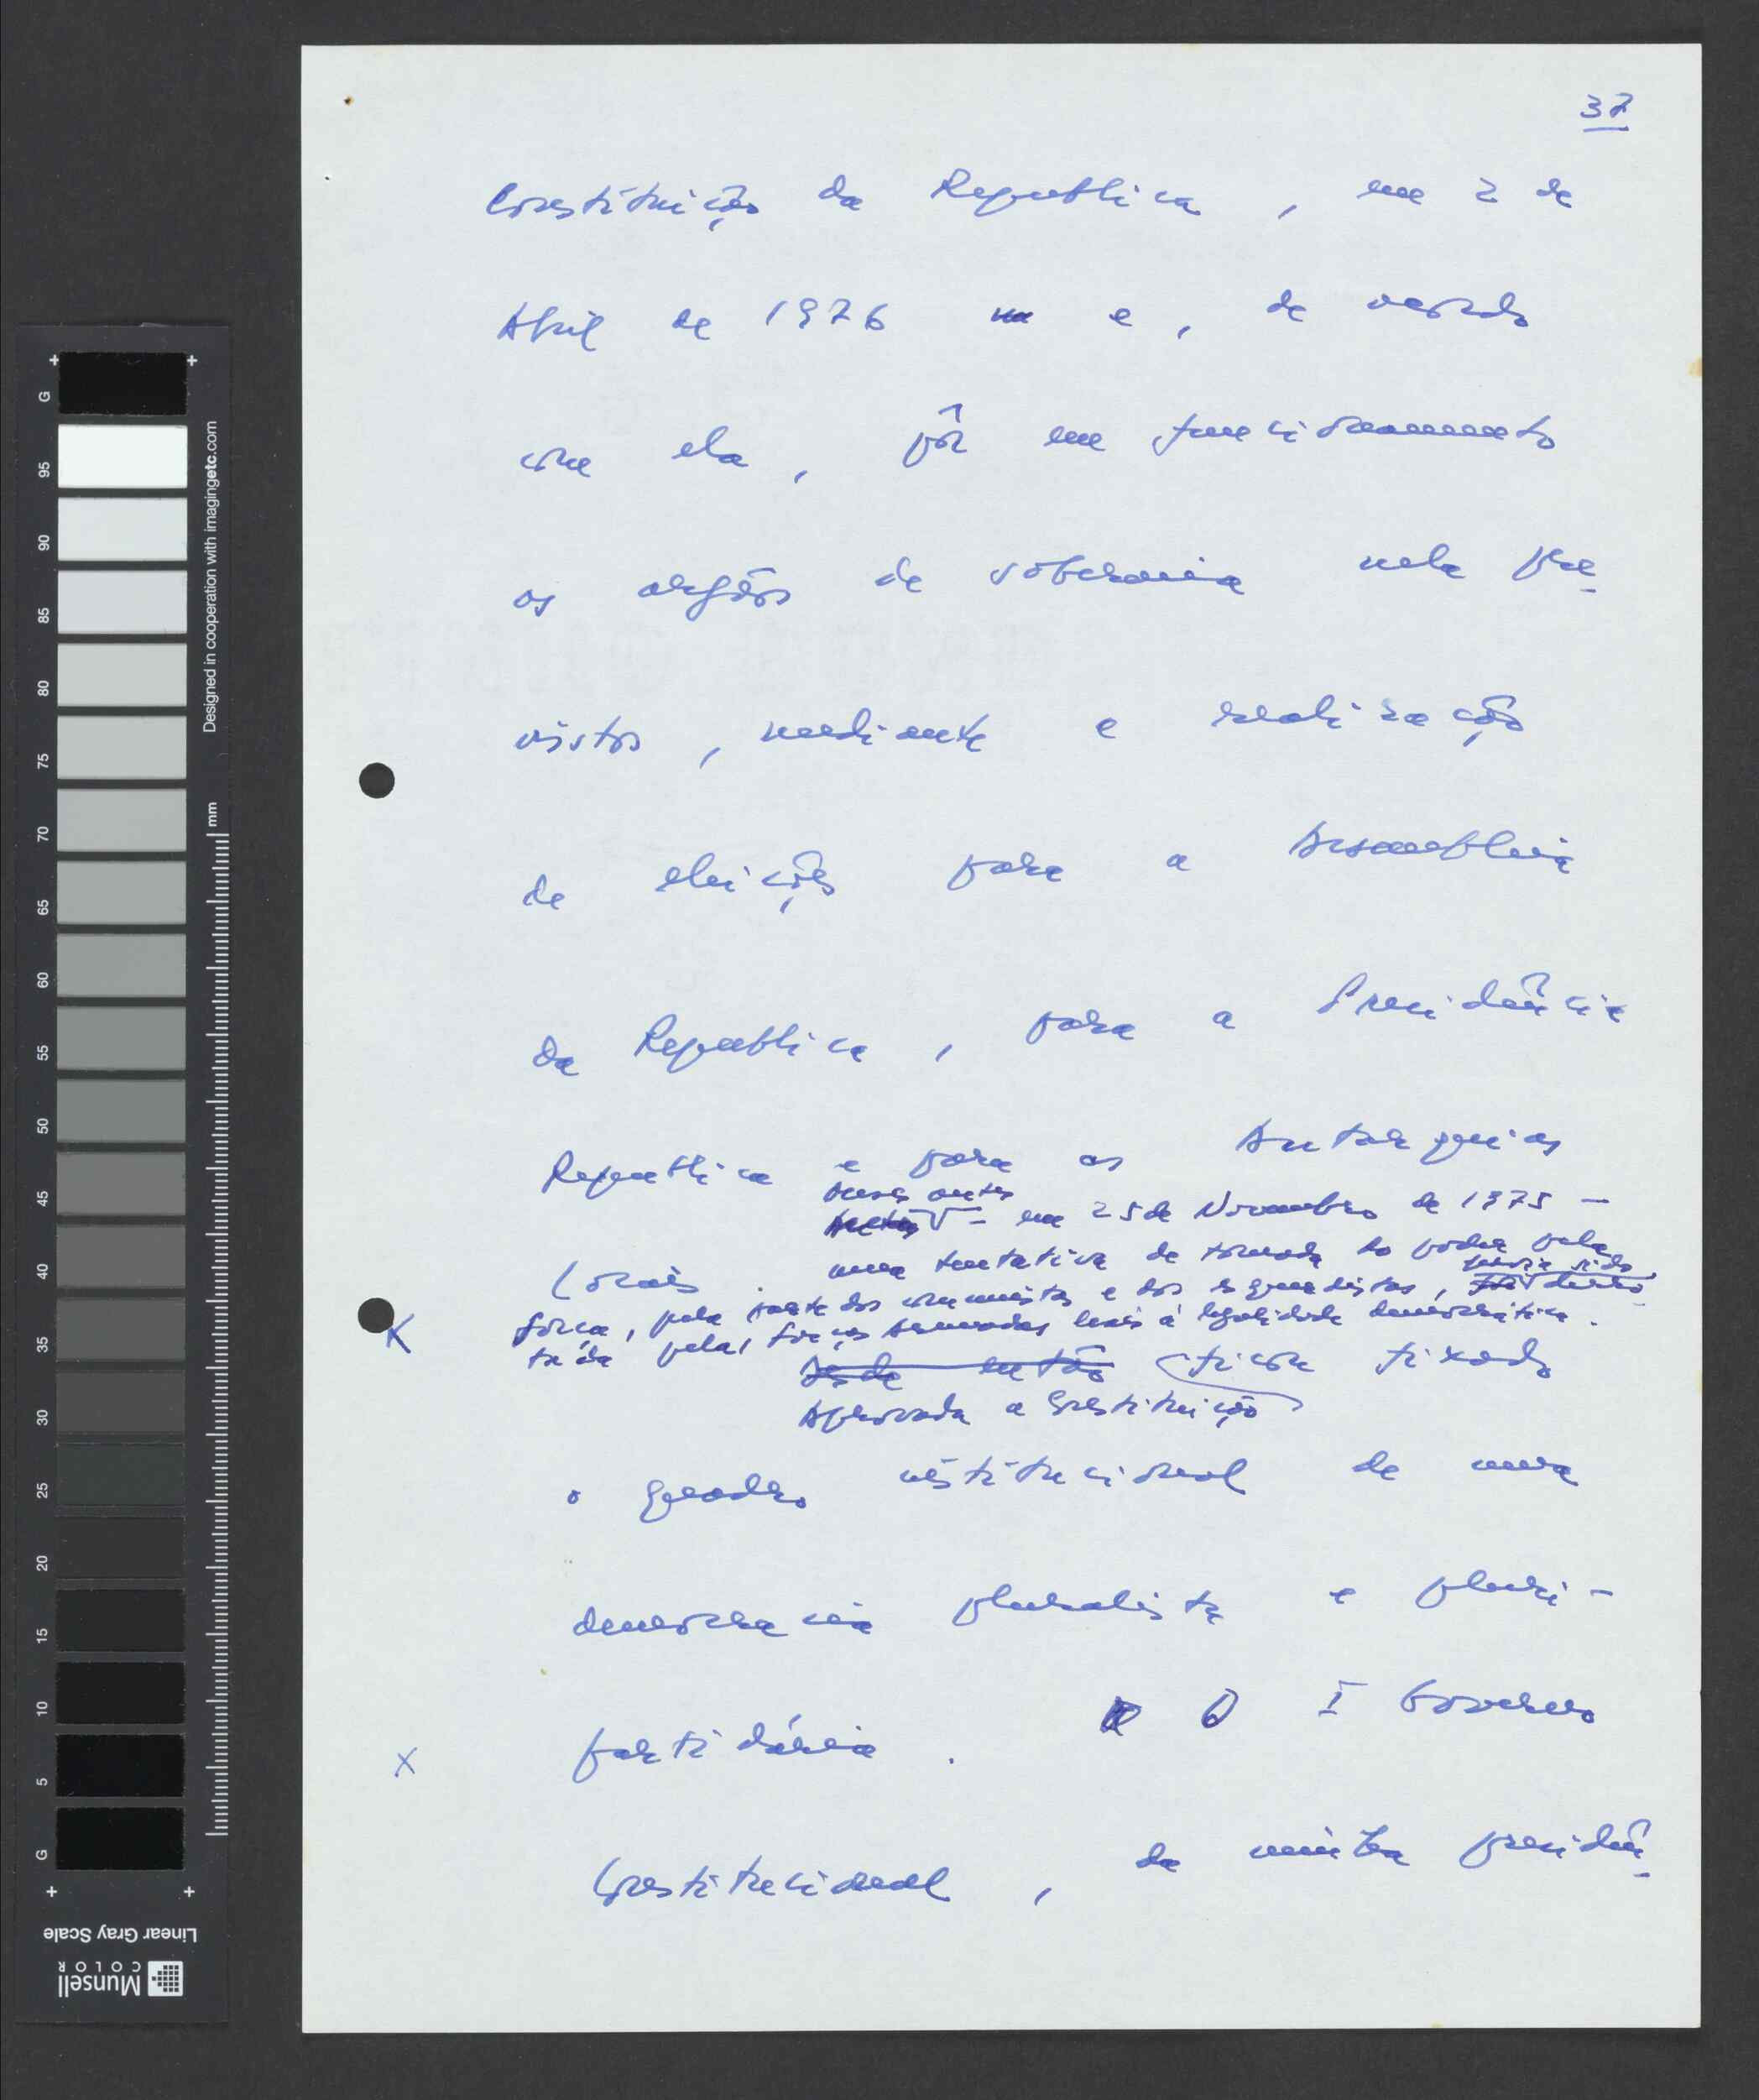 37
Constituição da Republica, em 2 de
Abril de 1976 e, de acordo
com ela, pôr em funcionamento
os orgãos de soberania nela pre-
vistos, mediante a realização
de eleições para a Assembleia
da Republica, para a Presidência
Republica e para as Autarquias
meses antes
- em 25 de Novembro de 1975 -
Locais. uma tentativa de tomada do poder pela
havia sido
força, pela parte dos comunistas e dos esquerdistas, foi derro-
tada pelas forças Armadas leais à legalidade democrática.
X
Desde então ficou fixado
Aprovada a Constituição
o quadro institucional de uma
democracia pluralista e pluri-
partidária. O I Governo
X
Constitucional, da minha presidên-
G 95 90 85 80 75 70 65 60 55 50 45 40 35 30 25 20 15 10 5 G
Designed in cooperation with imagingetc.com
mm
Linear Gray Scale
Munsell
COLOR